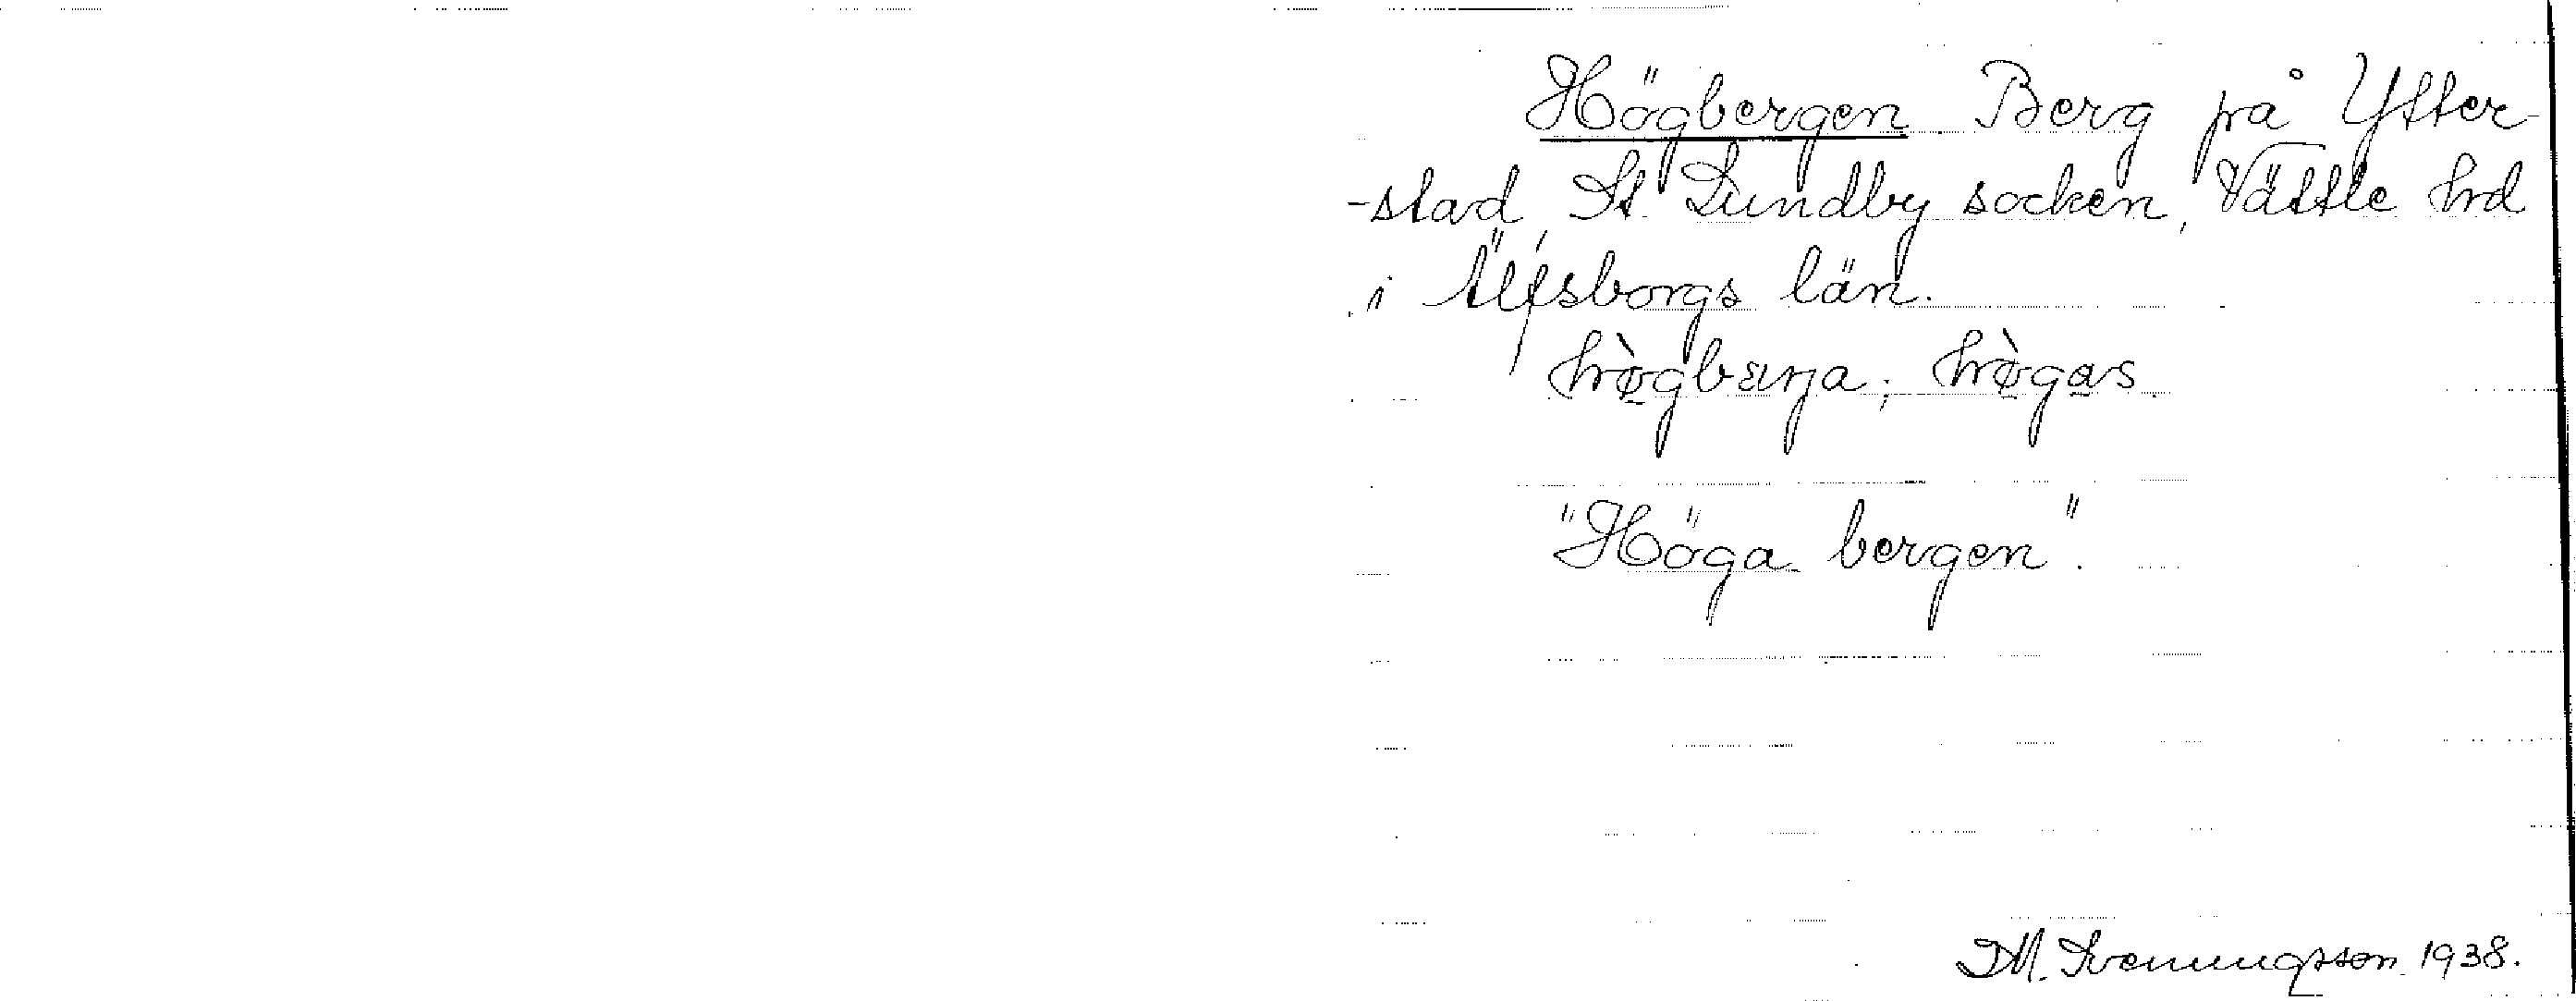 Högbergen Berg på Ytter-
-stad, St. Lundby socken, Vättle hd
i Älfsborgs län.
hø̀gbærja; hø̀gas
"Höga bergen".
M. Svenungsson 1938.